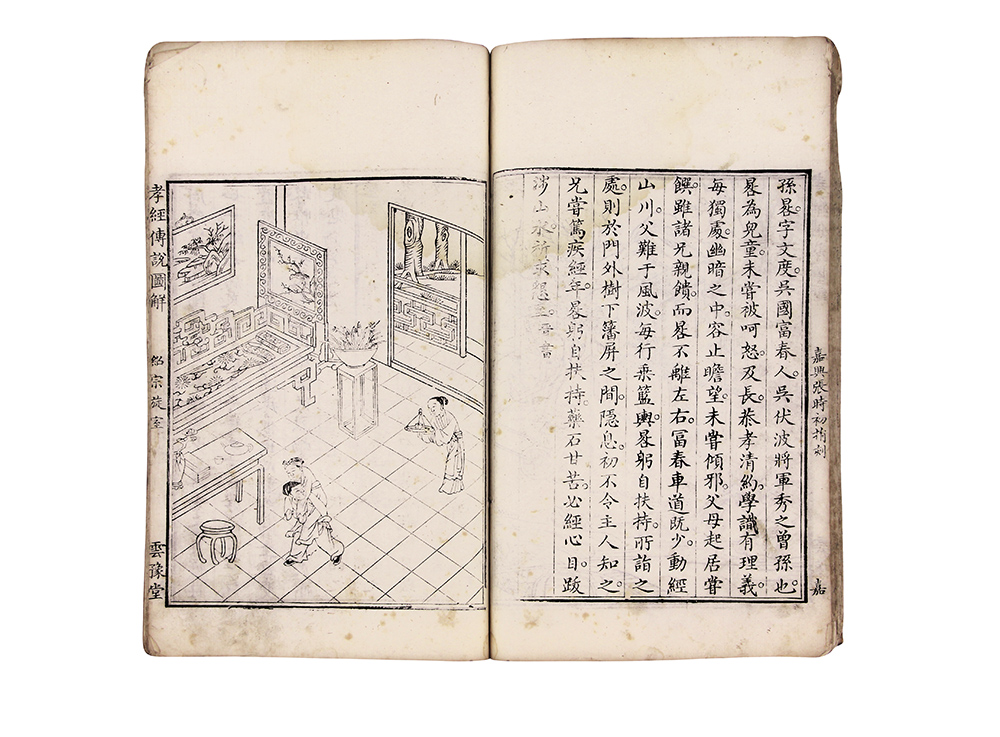 嘉興張時初刻
嘉
孫晷字文度。吳國富春人。吳伏波將軍秀之曾孫也。
晷為兒童。未嘗被呵怒。及長。恭孝清約。學識有理義。
每獨處幽暗之中。容止瞻望。未嘗傾邪。父母起居嘗
饌。雖諸兄親饋。而晷不離左右。富春車道既少。動經
山川。父難于風波。每行乘籃輿。晷躬自扶持。所詣之
處。則於門外樹下籓屏之間。隱息。初不令主人知之。
兄嘗篤疾經年。晷躬自扶持。藥石甘苦。必經心目。跋
涉山水。祈求懇至。晉書
孝經傳說圖解
紹宗旋室
雲豫堂